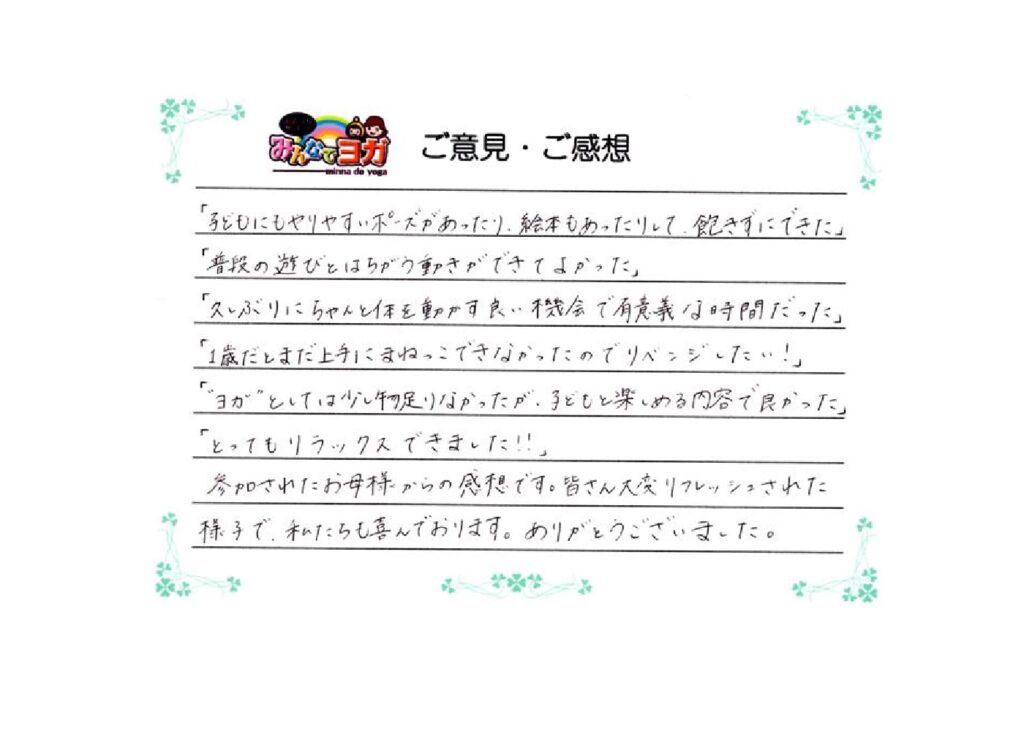 みんなでヨガ
minna de yoga
ご意見・ご感想
「子どもにもやりやすいポーズがあったり、絵本もあったりして、飽きずにできた」
「普段の遊びとはちがう動きができてよかった」
「久しぶりにちゃんと体を動かす良い機会で有意義な時間だった」
「1歳だとまだ上手にまねっこできなかったのでリベンジしたい！」
「"ヨガ"としては少し物足りなかったが、子どもと楽しめる内容で良かった」
「とってもリラックスできました!!」
参加されたお母様からの感想です。皆さん大変リフレッシュされた
様子で、私たちも喜んでおります。ありがとうございました。